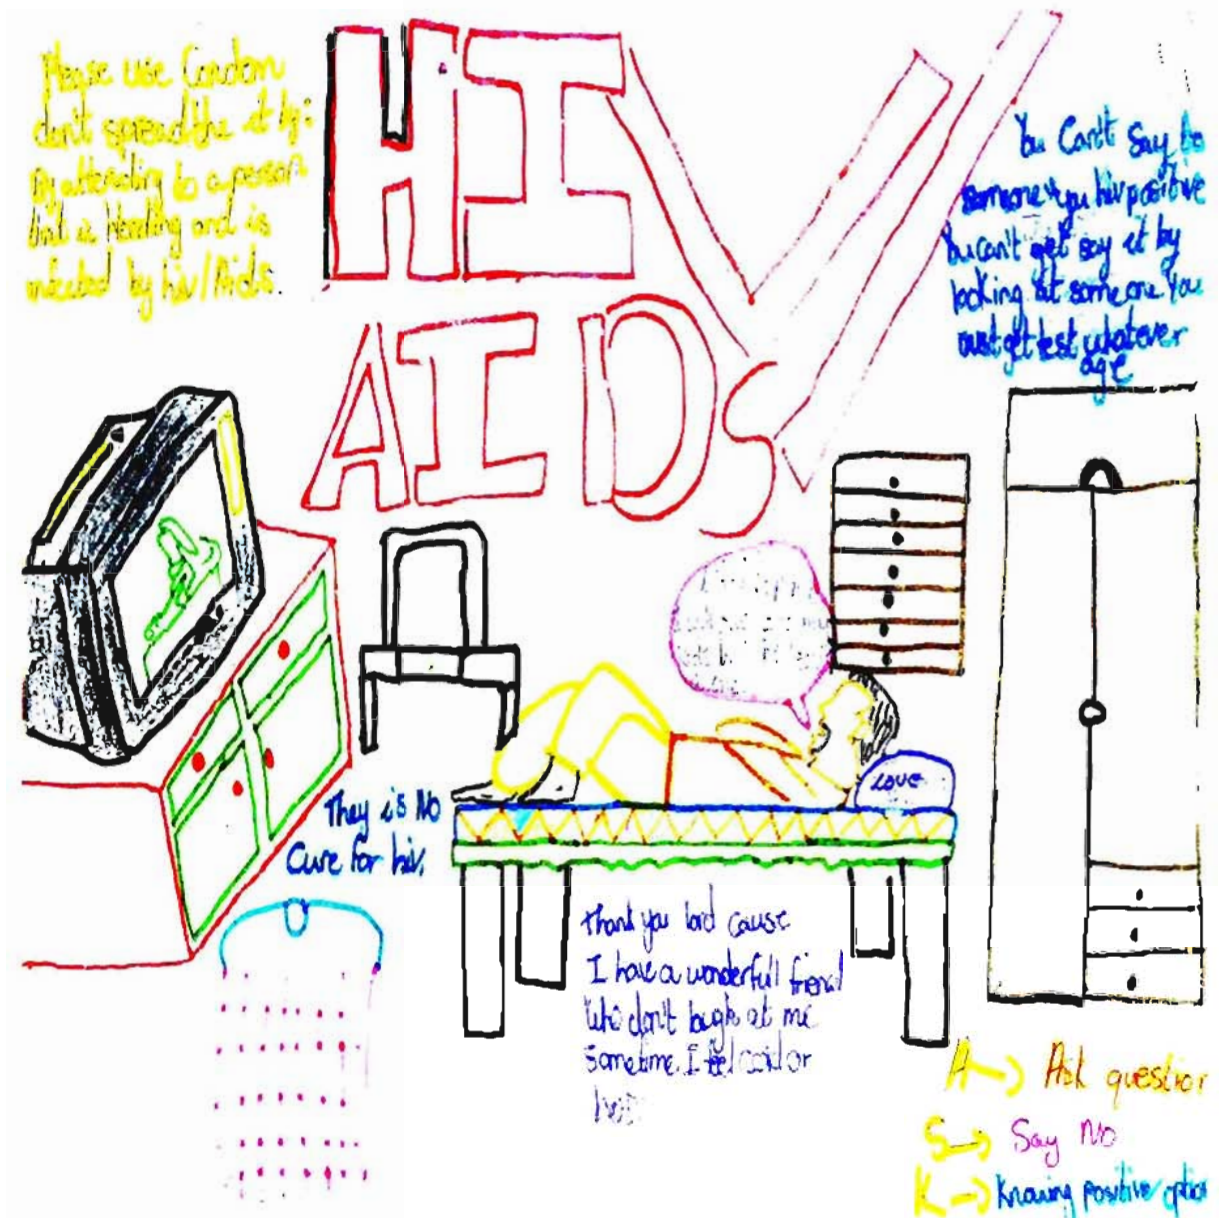 HIV
AIDS
Please use Condom
don't spread the it by:
By attending to a person
that is bleeding and is
infected by hiv/Aids.
You Can't Say to
someone you hiv positive
You can't get say it by
looking at someone You
must get test whatever
age
LOVE
They is No
Cure for hiv.
Thank you lord cause
I have a wonderfull friend
Who don't laugh at me
Sometime I feel cold or
hot
A → Ask question
S → Say No
K → Knowing positive option